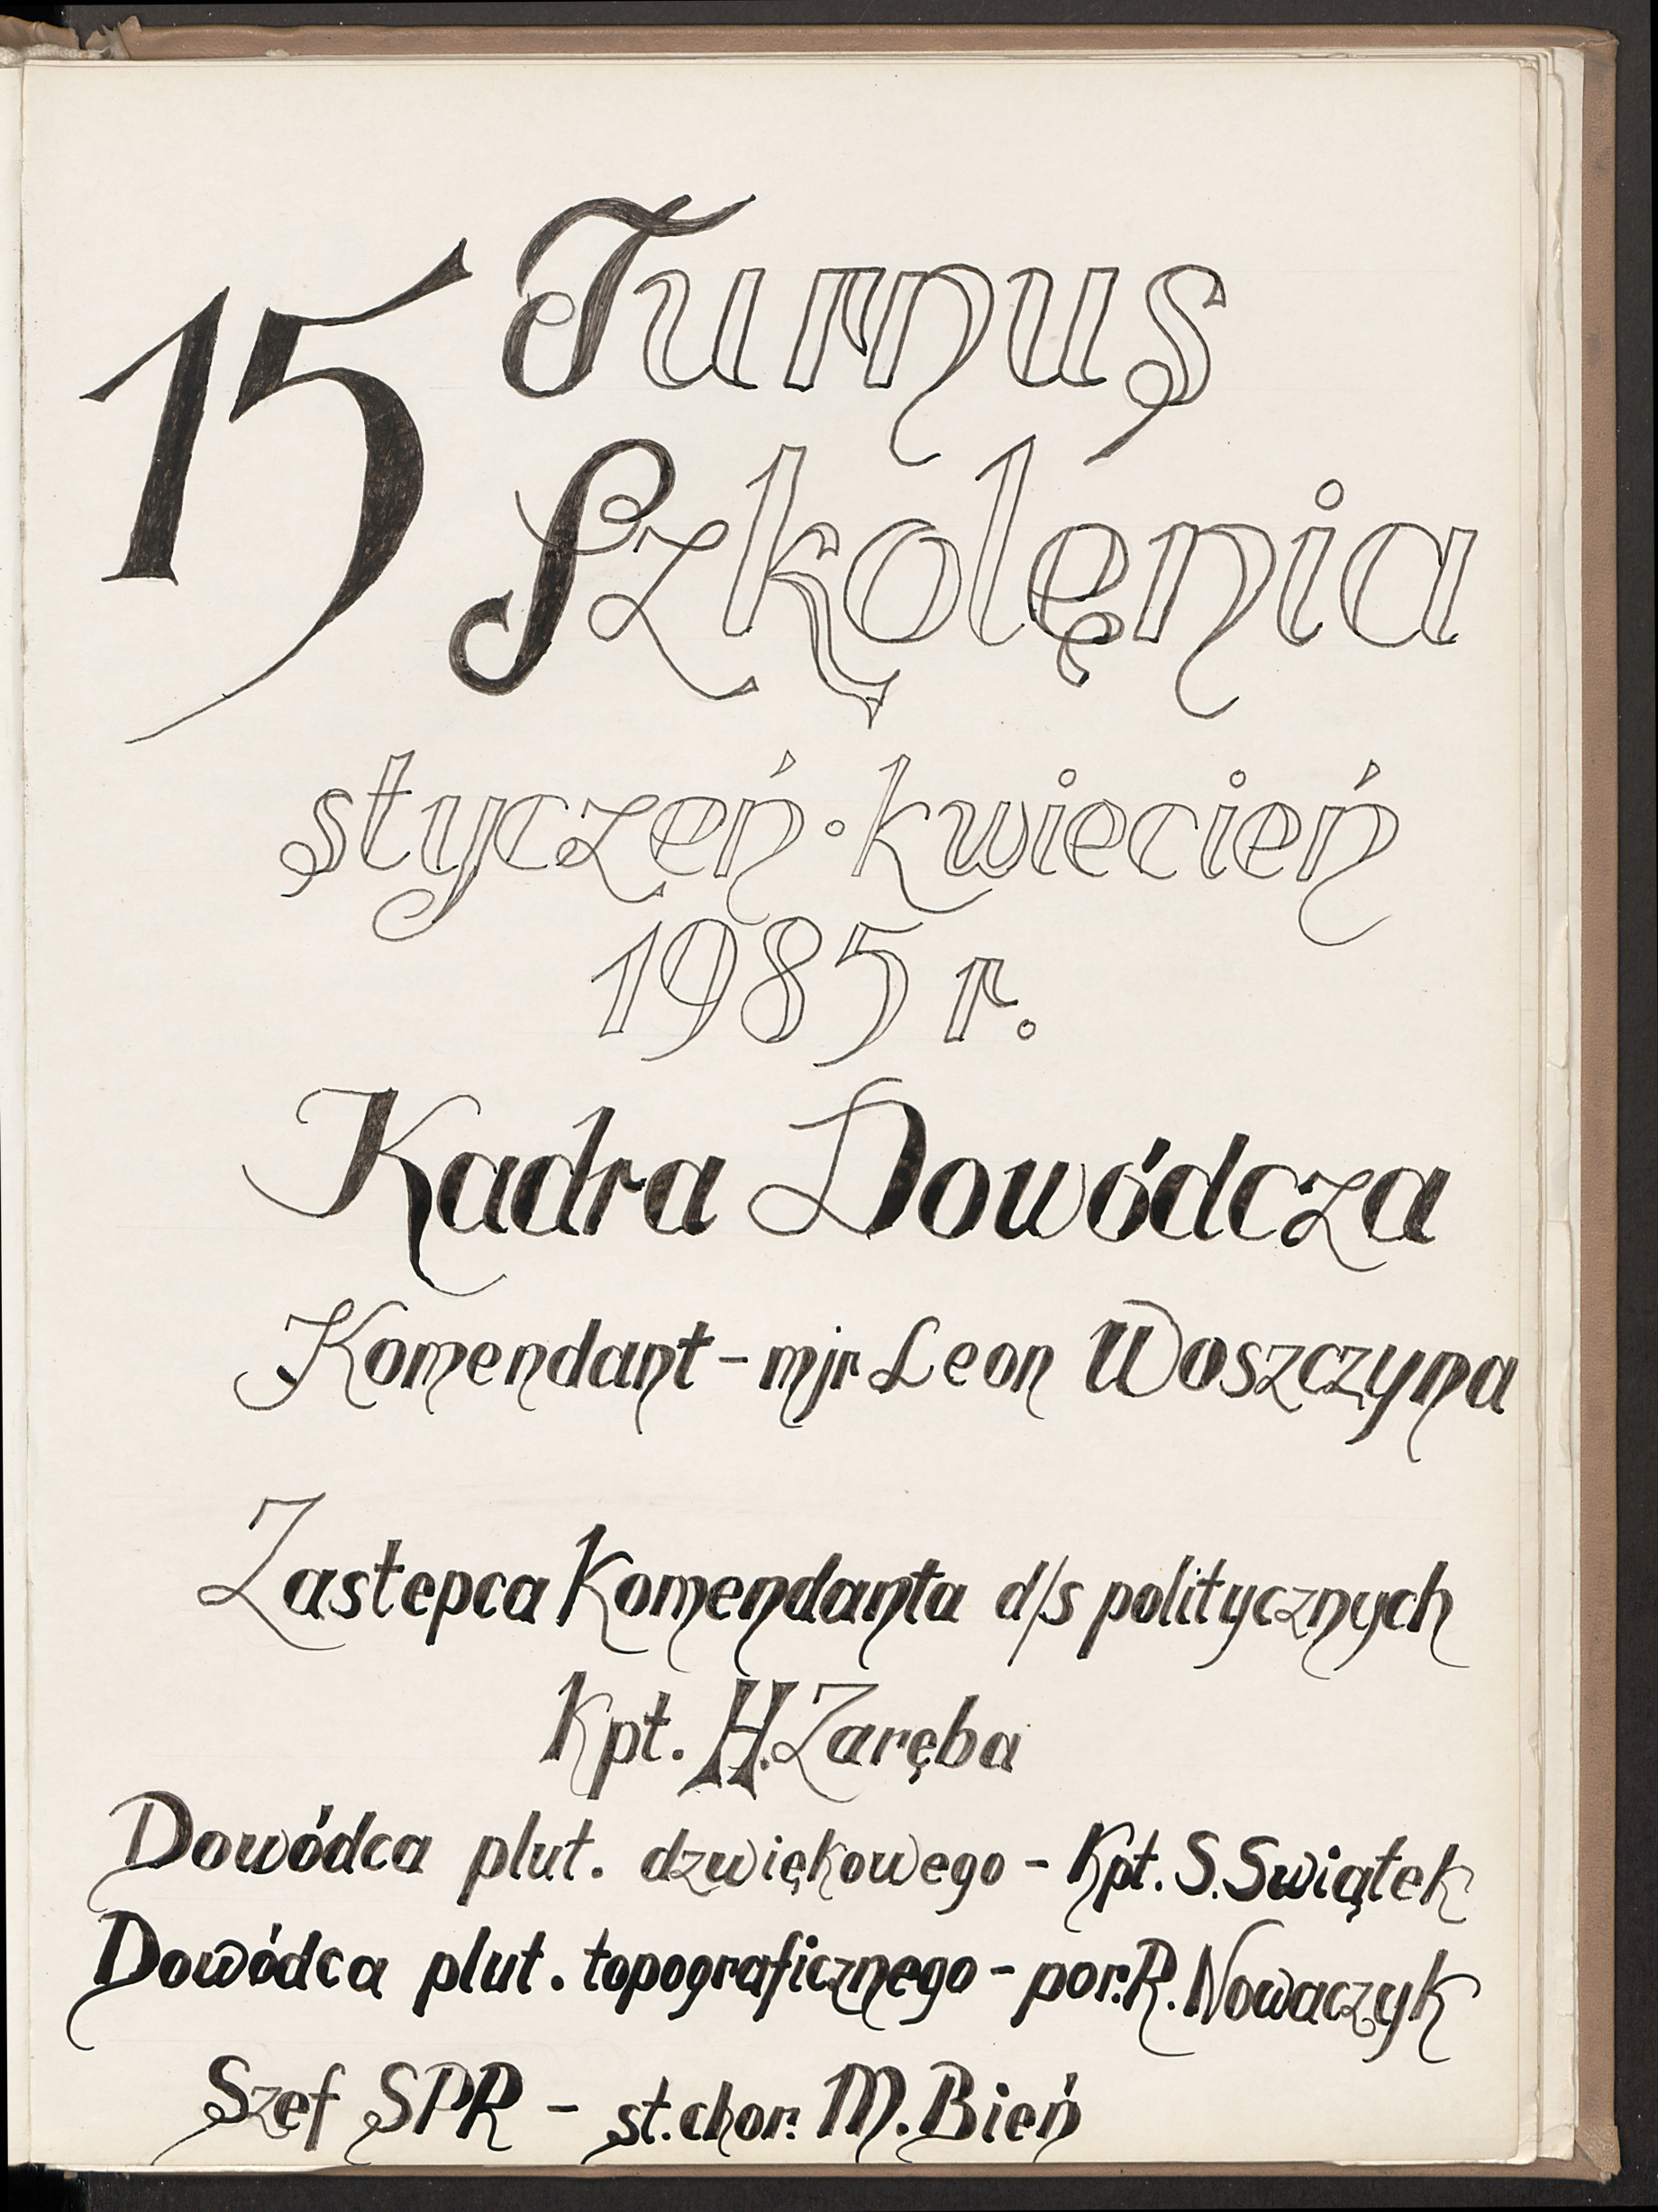 15 Turnus
Szkolęnia
styczeń·kwiecień
1985 r.
Kadra Dowódcza
Komendant - mjr Leon Woszczyna
Zastepca Komendanta d/s politycznych
Kpt. H. Zaręba
Dowódca plut. dzwiękowego - Kpt. S. Swiątek
Dowódca plut. topograficznego - por. R. Nowaczyk
Szef SPR - st. chor. M. Bień